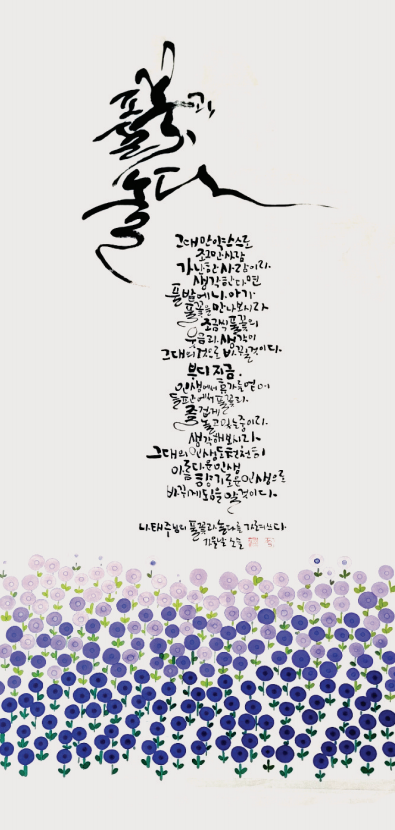 풀꽃과
놀다
그대 만약 스스로
조그만 사람
가난한 사람이라
생각한다면
풀밭에 나아가
풀꽃을 만나보시라
조금씩 풀꽃의
웃음과 생각이
그대의 것으로 바뀔 것이다.
부디 지금.
인생에서 휴가를 얻어
들판에서 풀꽃과
즐겁게
놀고 있는 중이라
생각해보시라
그대의 인생도 천천히
아름다운 인생
향기로운 인생으로
바뀌게 됨을 알 것이다.
나태주님의 풀꽃과 놀다를 쓰다